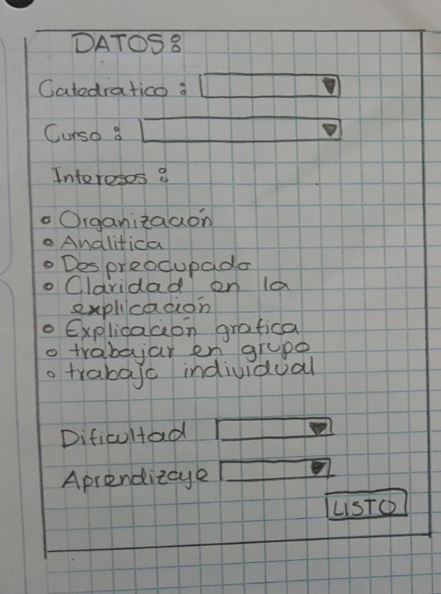 DATOS:
Catedratico :
Curso :
Intereses :
Organización
Analitica
Despreocupado
Claridad en la
explicación
Explicación grafica
trabajar en grupo
trabajo individual
Dificultad
Aprendizaje
LISTO